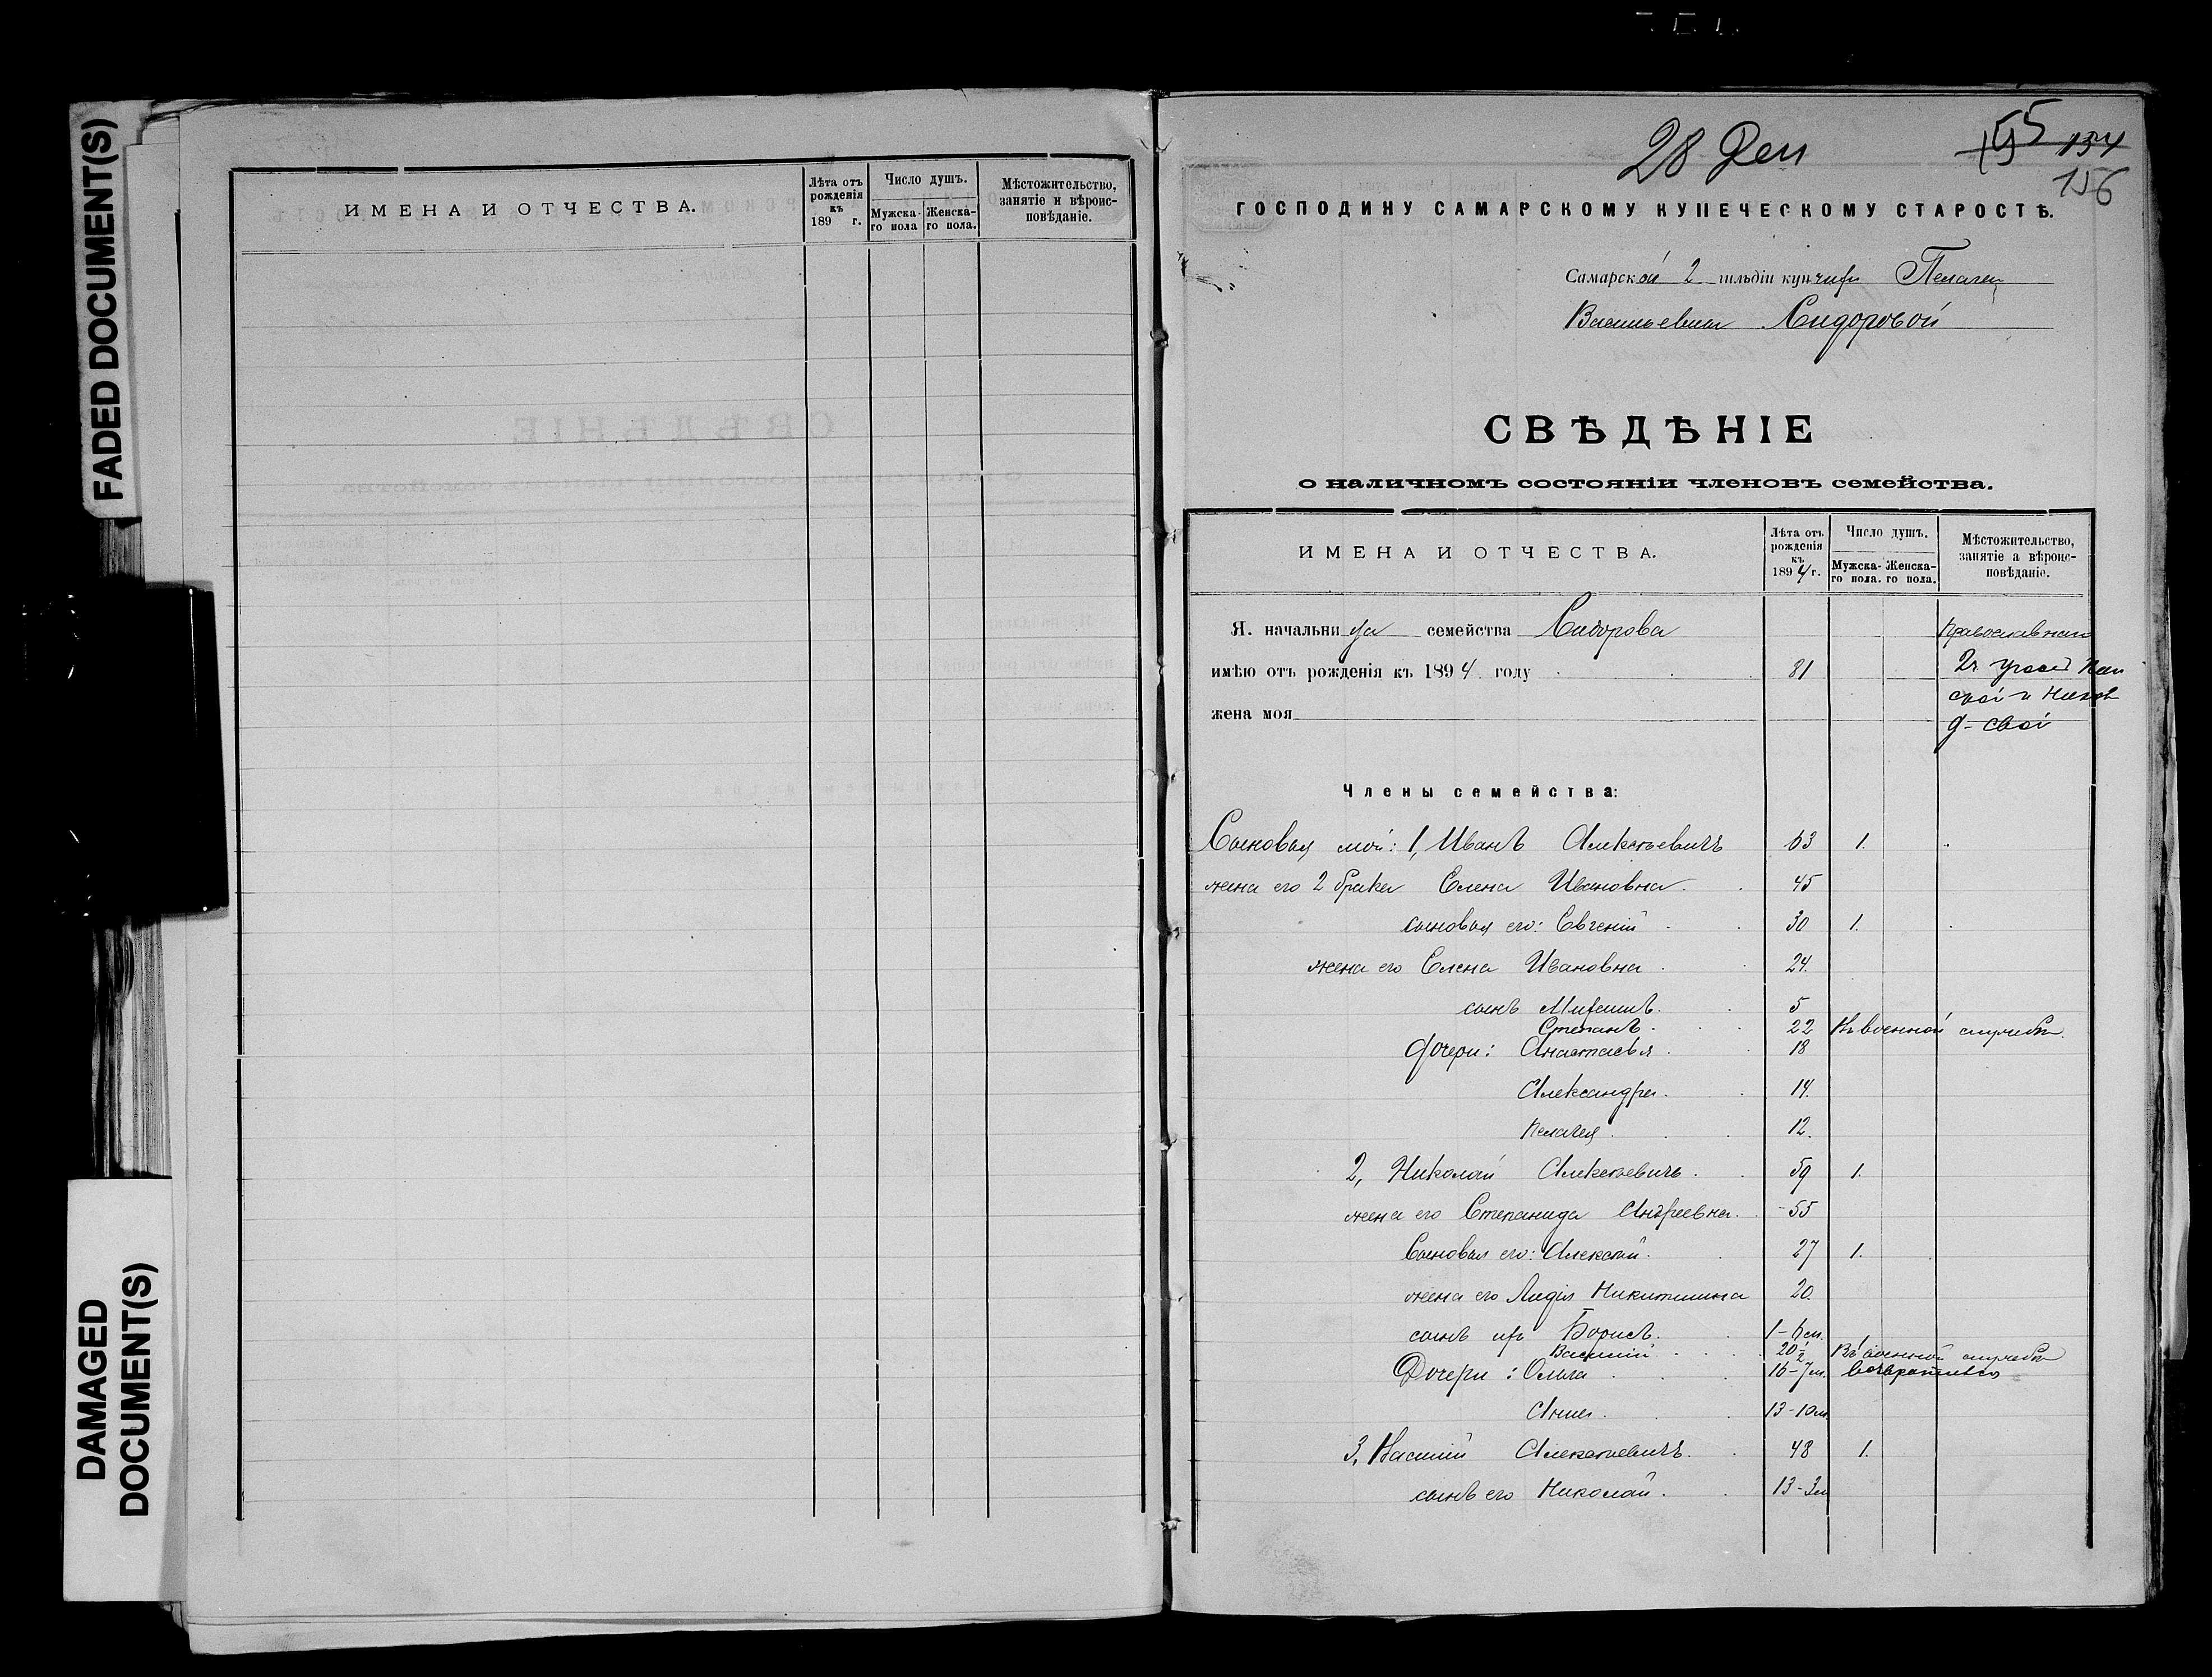 FADED DOCUMENT(S)
DAMAGED DOCUMENT(S)
ИМЕНА И ОТЧЕСТВА.
Лѣта отъ рожденія къ 189 г.
Число душъ.
Мужска-го пола
Женска-го пола.
Мѣстожительство, занятіе и вѣроис-повѣданіе.
28 Ден
155 134
156
ГОСПОДИНУ САМАРСКОМУ КУПЕЧЕСКОМУ СТАРОСТѢ.
Самарской 2 гильдіи купчихи Пелагеи
Васильевны Сидоровой
СВѢДѢНІЕ
о наличномъ состояніи членовъ семейства.
ИМЕНА И ОТЧЕСТВА.
Лѣта отъ рожденія къ 1894 г.
Число душъ.
Мужска-го пола.
Женска-го пола.
Мѣстожительство, занятіе а вѣроис-повѣданіе.
Я. начальница семейства Сидорова Православная
имѣю отъ рожденія къ 1894 году 81 2й
свой и
жена моя д. свой
Члены семейства:
Сыновья мои: 1, Иванъ Алексѣевичъ 63 1.
жена его 2 брака Елена Ивановна. 45
сыновья его: Евгеній 30 1.
жена его Елена Ивановна 24.
сынъ Михаилъ. 5
Степанъ. 22 Въ военной службѣ.
Дочери: Анастасья 18
Александра. 14.
Пелагея 12.
2, Николай Алексѣевичъ. 59 1.
жена его Степанида Андреевна. 55
Сыновья его: Алексѣй. 27 1.
жена его Лидія Никитишна 20.
сынъ ихъ Борисъ. 1-6 м.
Василій 20½ Въ военной службѣ
Дочери: Ольга 16-7 м. возвратился
Анна. 13-10 м.
3, Василій Алексѣевичъ. 48 1.
сынъ его Николай. 13-3 м